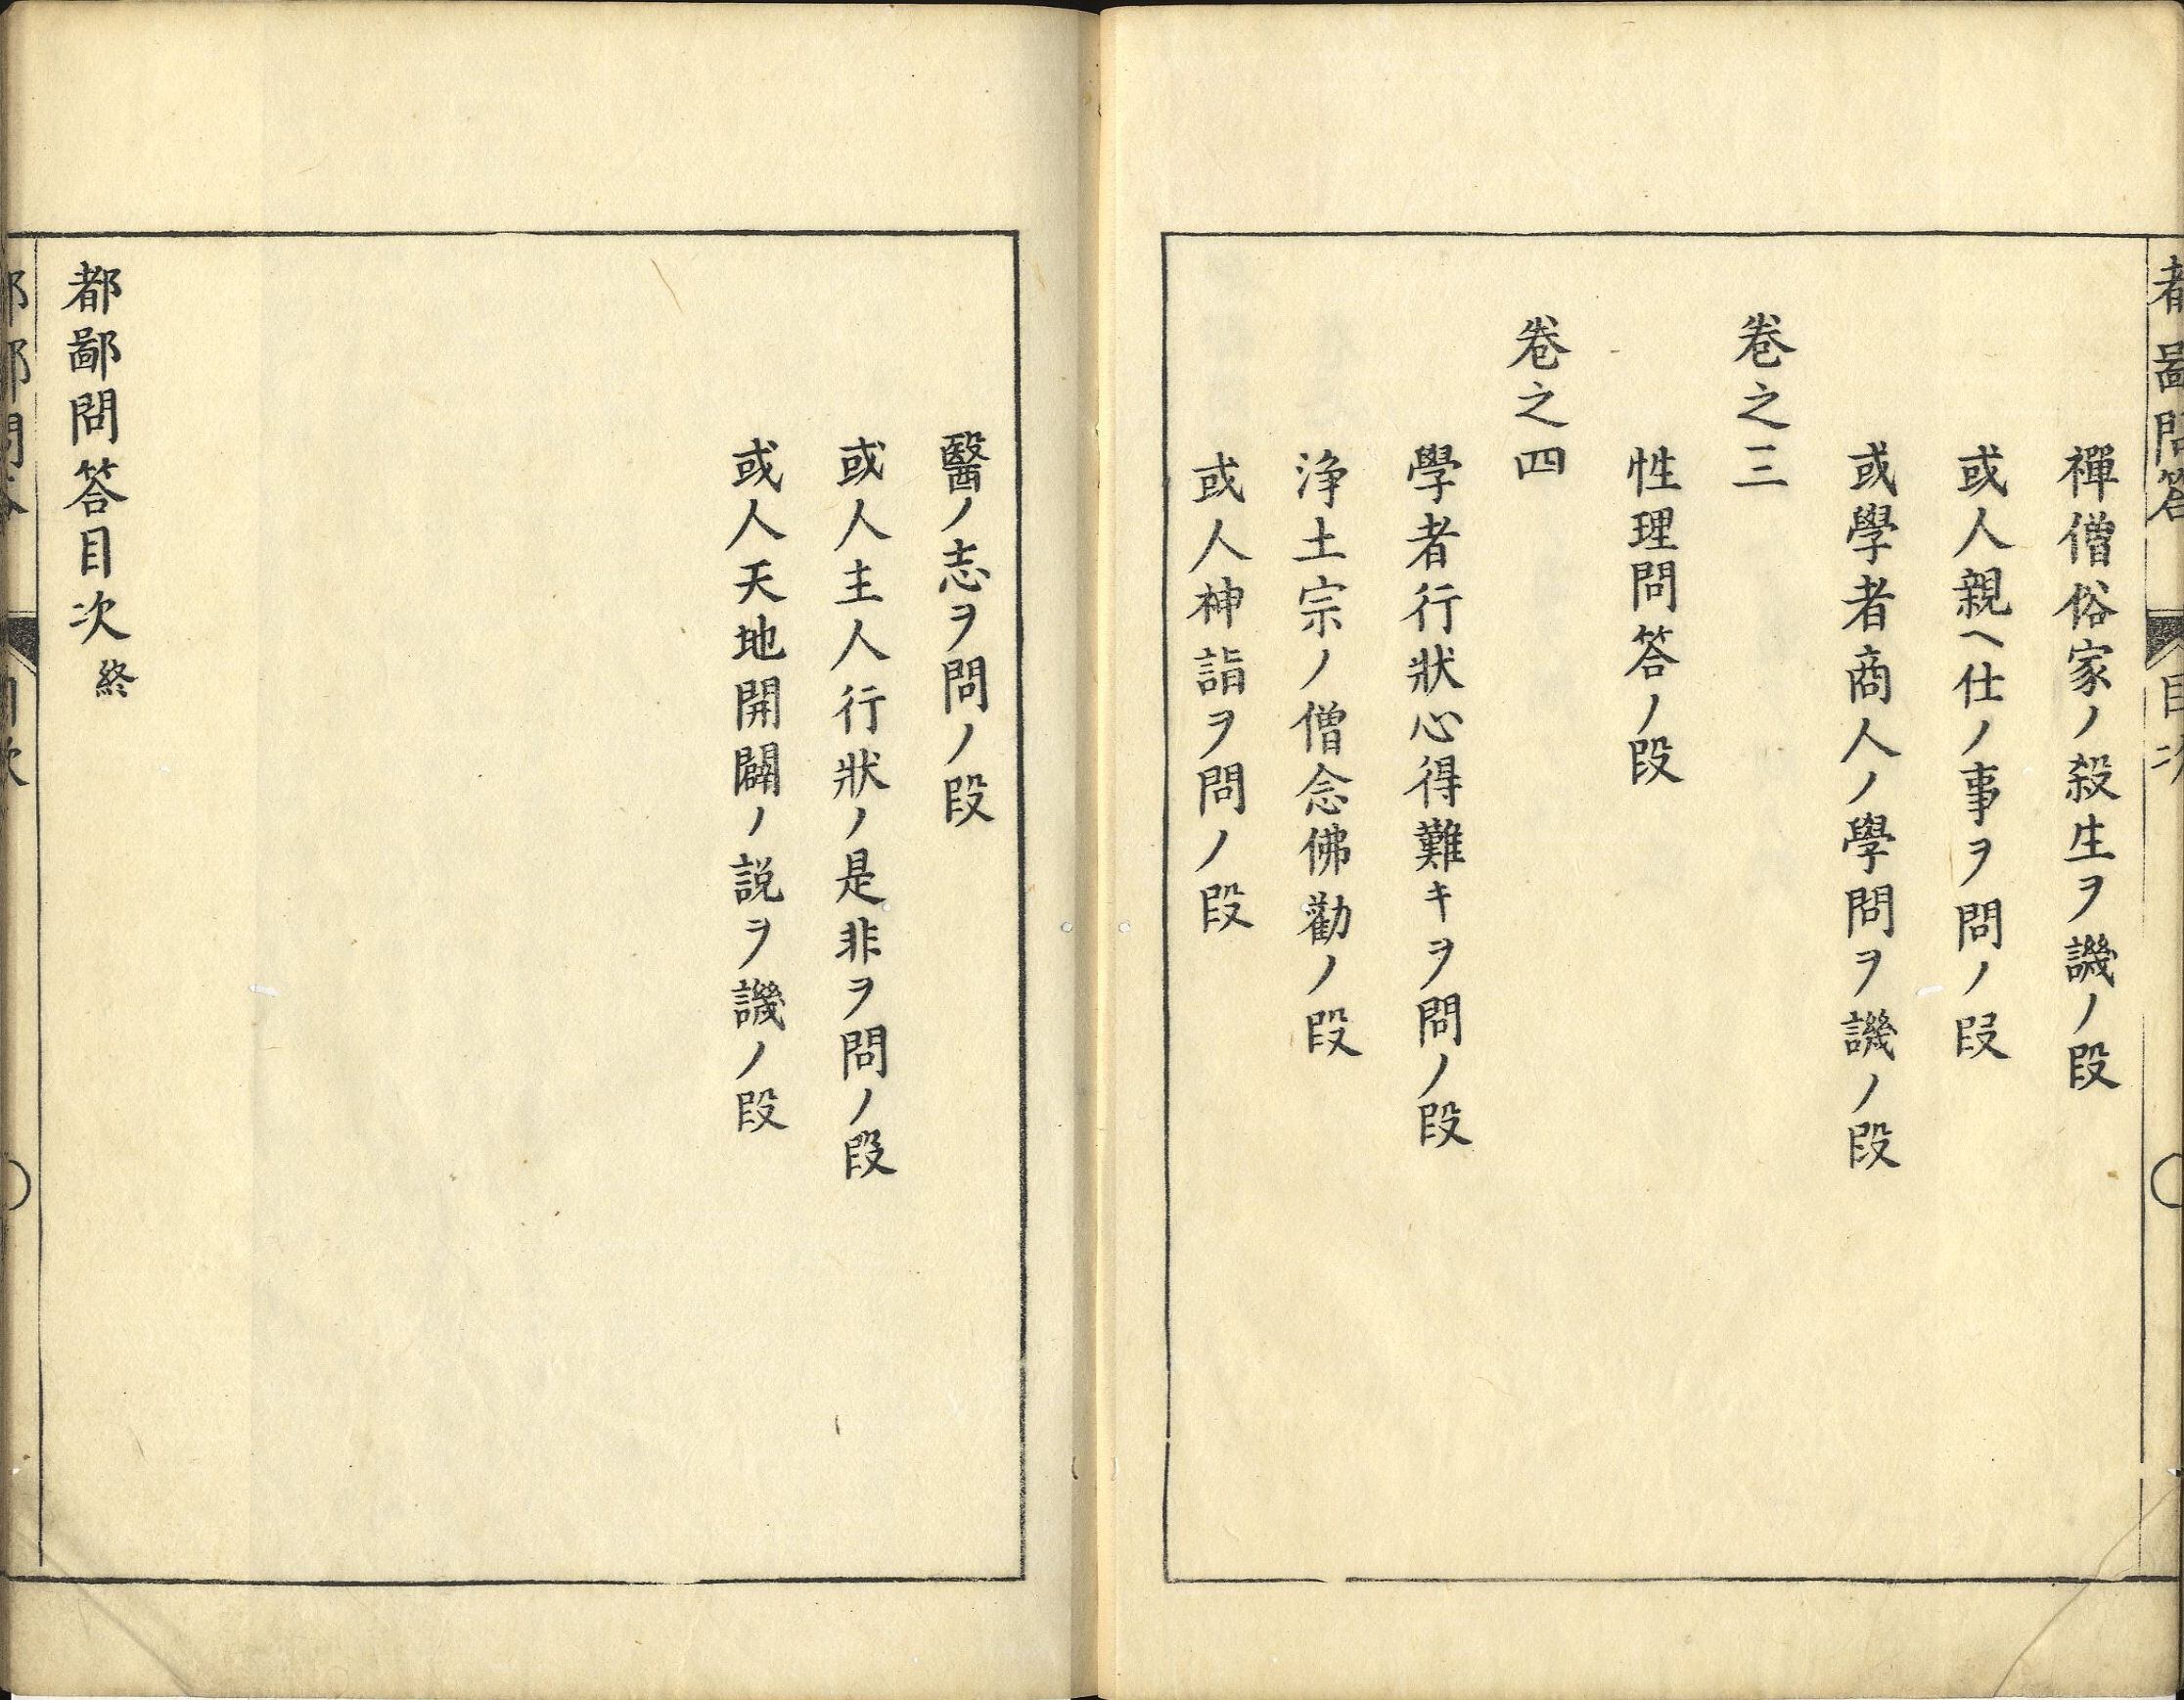 都鄙問答
目次
禪僧俗家ノ殺生ヲ譏ノ段
或人親ヘ仕ノ事ヲ問ノ段
或學者商人ノ學問ヲ譏ノ段
卷之三
性理問答ノ段
卷之四
學者行狀心得難キヲ問ノ段
浄土宗ノ僧念佛勸ノ段
或人神詣ヲ問ノ段
醫ノ志ヲ問ノ段
或人主人行狀ノ是非ヲ問ノ段
或人天地開闢ノ説ヲ譏ノ段
都鄙問答目次終
都鄙問答
目次